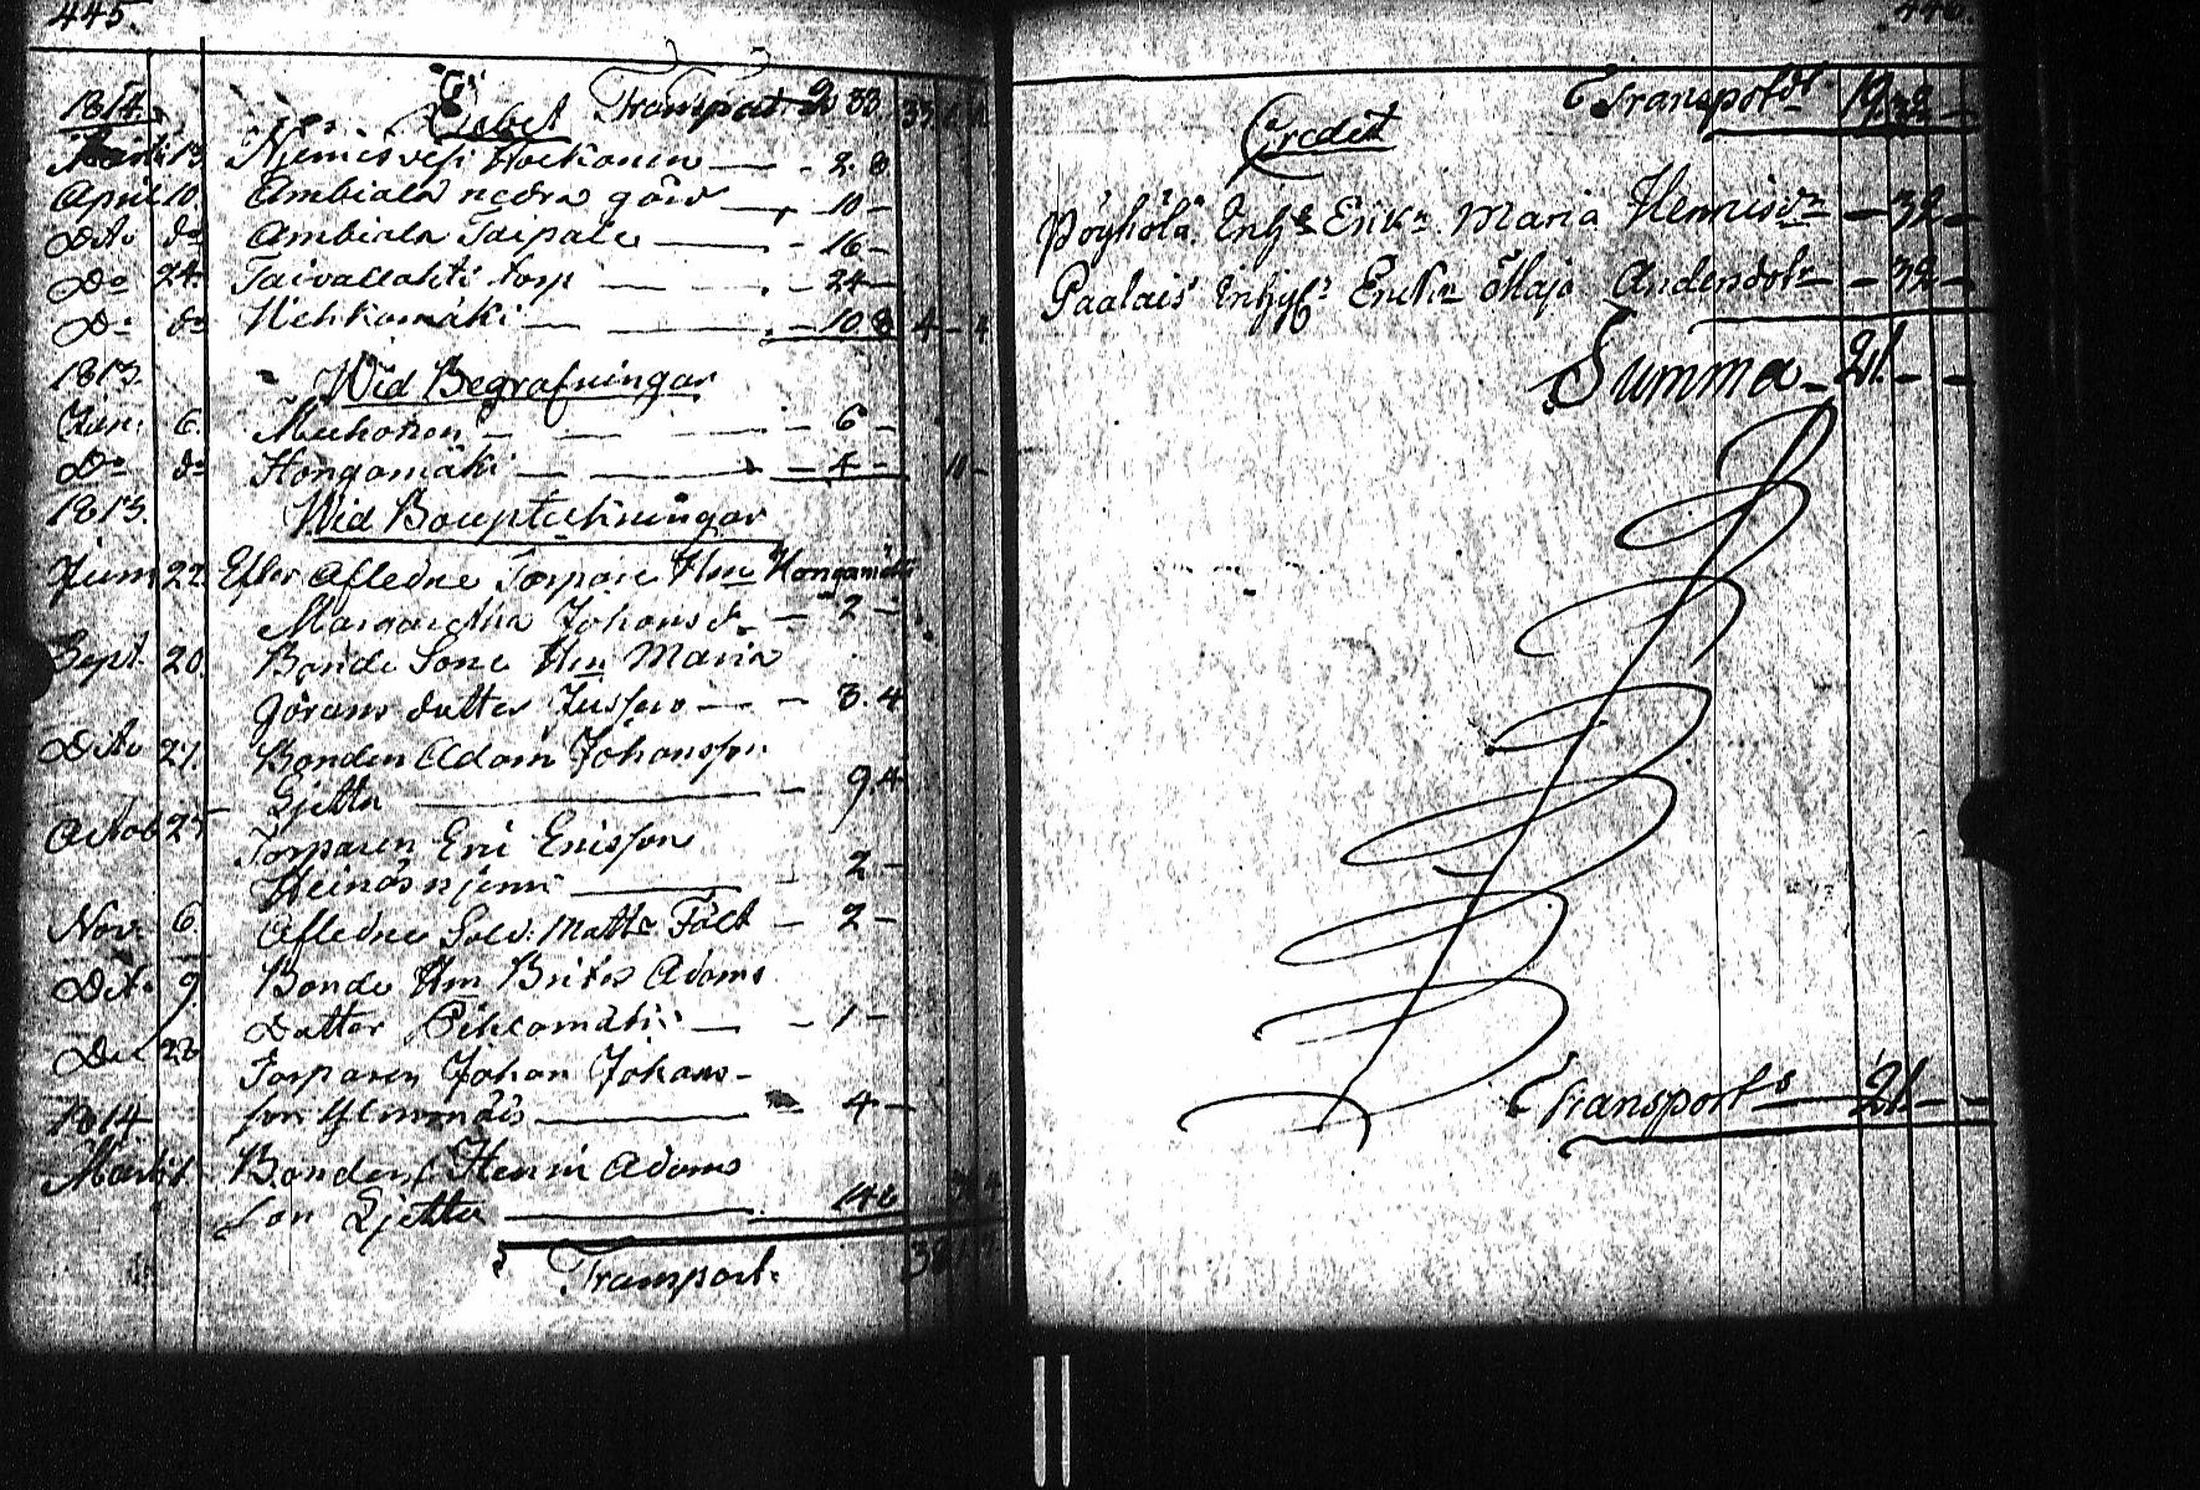 445.
1814. Debet Transport 2 33 33
13. Niemisvesi Hockanen — 2. 8
April 10. Ambiala nedra gård — 10 —
Dito do Ambiala Taipale — 16 —
Do 24. Taivallahti torp — 24 —
Do do Wehkamäki — 10. 8 4 — 4
1813. Wid Begrafningar
Jan. 6. — 6 —
Do do Hongomäki — 4 — 10 —
1813. Wid Bouptekningar
Junii 22. Efter Afledne Torpare Hru Hongamäki
Margaretha Johansd. — 2 —
Sept. 20. Bonde Sone Hru Maria
Görans dotter Jussew — 3. 4
Dito 27. Bonden Adam Johansson
Gjetta — 9. 4
Octob 27 Torparen Eric Ericsson
Heinäsnjemi — 2 —
Nov. 6. Afledne Sold: Matts Fält — 2 —
Dito 9. Bonde Hru Brita Adams
Dotter — 1 —
Dec 22 Torparen Johan Johans-
1814 son — 4 —
Martii 1. Bonden Henric Adams
son Gjetta — 14 8
Transport.
446.
Transport 19 32 —
Credit
Pöyhölä Inhs Erikn Maria Henricsdn — 32 —
Paalais Erickn Maja Andersdotr — 32 —
Summa — 21. — —
Transport — 21 — —